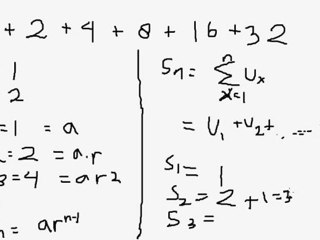 + 2 + 4 + 8 + 16 + 32
1
2
=1 = a
=2 = a.r
3=4 = ar2
= ar^{n-1}
S_n = \sum_{x=1}^{n} U_x
= U_1 + U_2 + ......
S_1 = 1
S_2 = 2 + 1 = 3
S_3 =